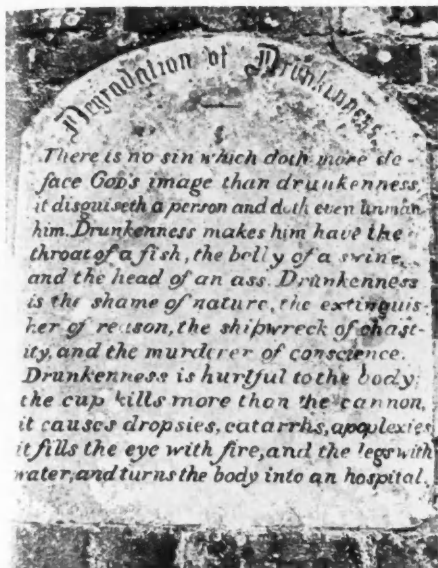 Degradation of Drunkenness.
There is no sin which doth more de-
face GOD'S image than drunkenness,
it disguiseth a person and doth even unman
him. Drunkenness makes him have the
throat of a fish, the belly of a swine,
and the head of an ass. Drunkenness
is the shame of nature, the extinguis
her of reason, the shipwreck of chast-
ity, and the murderer of conscience.
Drunkenness is hurtful to the body;
the cup kills more than the cannon,
it causes dropsies, catarrhs, apoplexies
it fills the eye with fire, and the legs with
water, and turns the body into an hospital.